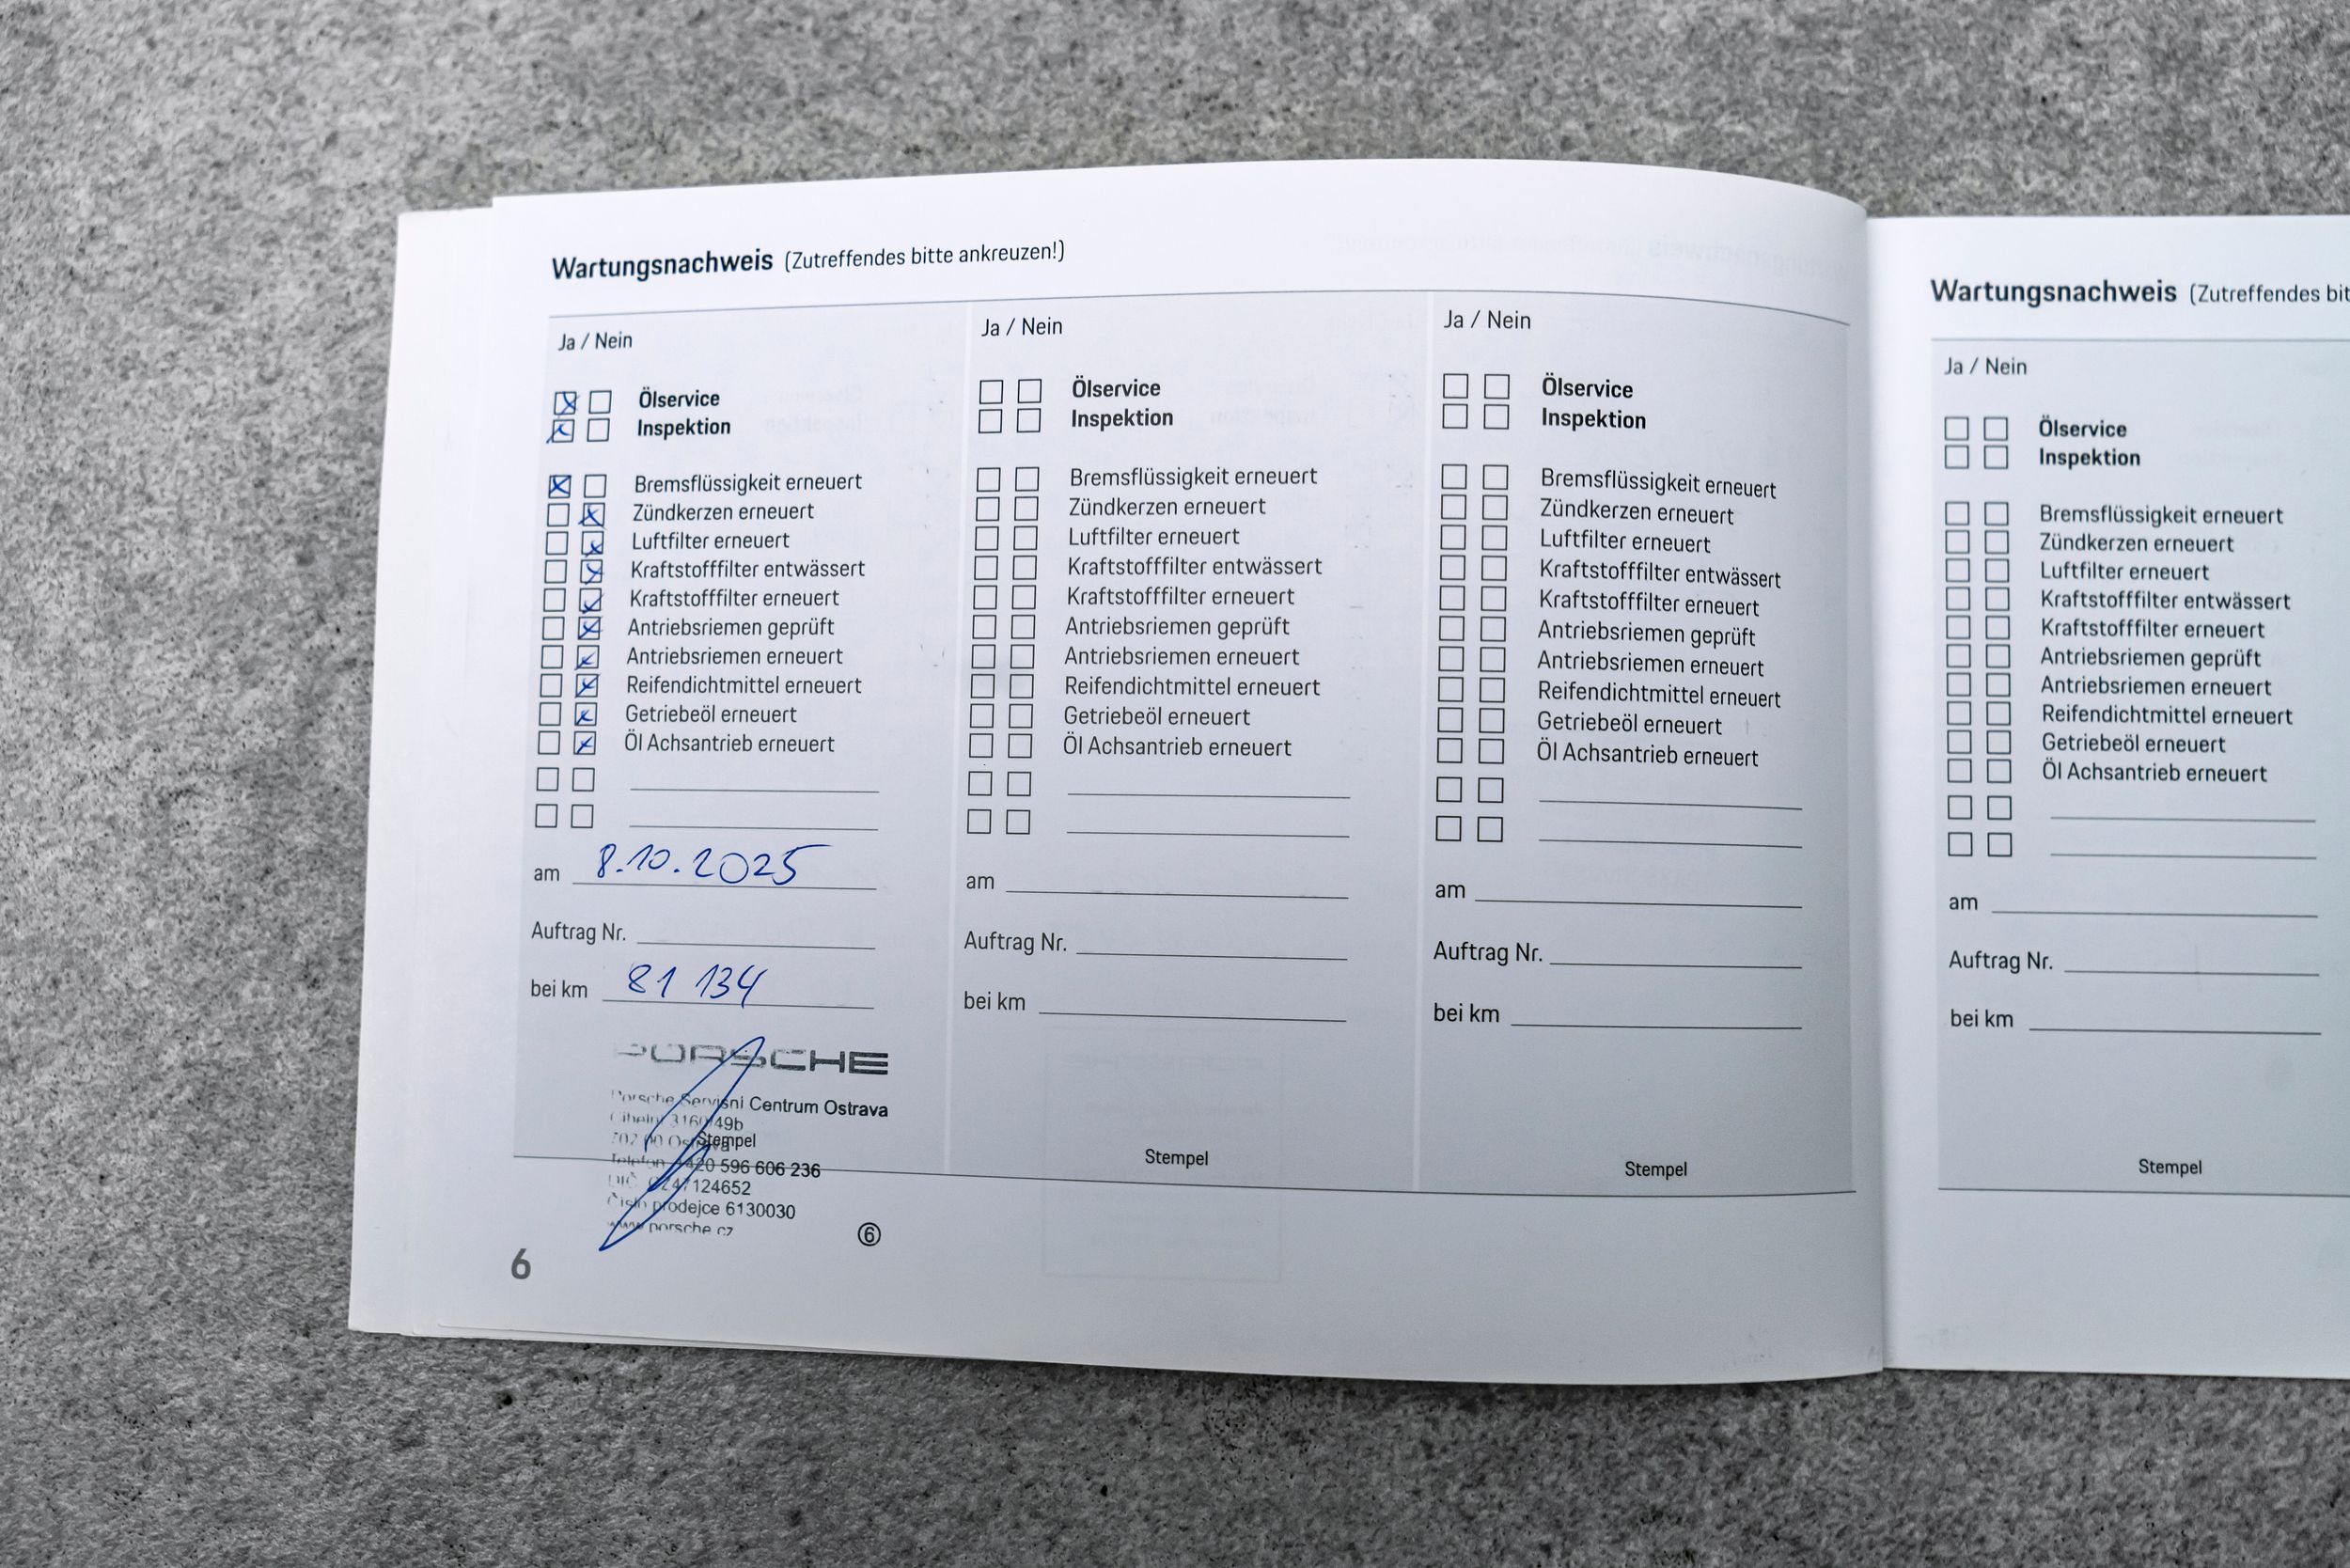 Wartungsnachweis (Zutreffendes bitte ankreuzen!)
Ja / Nein
Ölservice
Inspektion
Bremsflüssigkeit erneuert
Zündkerzen erneuert
Luftfilter erneuert
Kraftstofffilter entwässert
Kraftstofffilter erneuert
Antriebsriemen geprüft
Antriebsriemen erneuert
Reifendichtmittel erneuert
Getriebeöl erneuert
Öl Achsantrieb erneuert
am 8.10.2025
Auftrag Nr.
bei km 81 134
PORSCHE
Porsche Servisní Centrum Ostrava
3160/49b
Stempel
Telefon +420 596 606 236
DIČ
Číslo prodejce 6130030
www.porsche.cz
⑥
6
Ja / Nein
Ölservice
Inspektion
Bremsflüssigkeit erneuert
Zündkerzen erneuert
Luftfilter erneuert
Kraftstofffilter entwässert
Kraftstofffilter erneuert
Antriebsriemen geprüft
Antriebsriemen erneuert
Reifendichtmittel erneuert
Getriebeöl erneuert
Öl Achsantrieb erneuert
am
Auftrag Nr.
bei km
Stempel
Ja / Nein
Ölservice
Inspektion
Bremsflüssigkeit erneuert
Zündkerzen erneuert
Luftfilter erneuert
Kraftstofffilter entwässert
Kraftstofffilter erneuert
Antriebsriemen geprüft
Antriebsriemen erneuert
Reifendichtmittel erneuert
Getriebeöl erneuert
Öl Achsantrieb erneuert
am
Auftrag Nr.
bei km
Stempel
Wartungsnachweis (Zutreffendes bit
Ja / Nein
Ölservice
Inspektion
Bremsflüssigkeit erneuert
Zündkerzen erneuert
Luftfilter erneuert
Kraftstofffilter entwässert
Kraftstofffilter erneuert
Antriebsriemen geprüft
Antriebsriemen erneuert
Reifendichtmittel erneuert
Getriebeöl erneuert
Öl Achsantrieb erneuert
am
Auftrag Nr.
bei km
Stempel